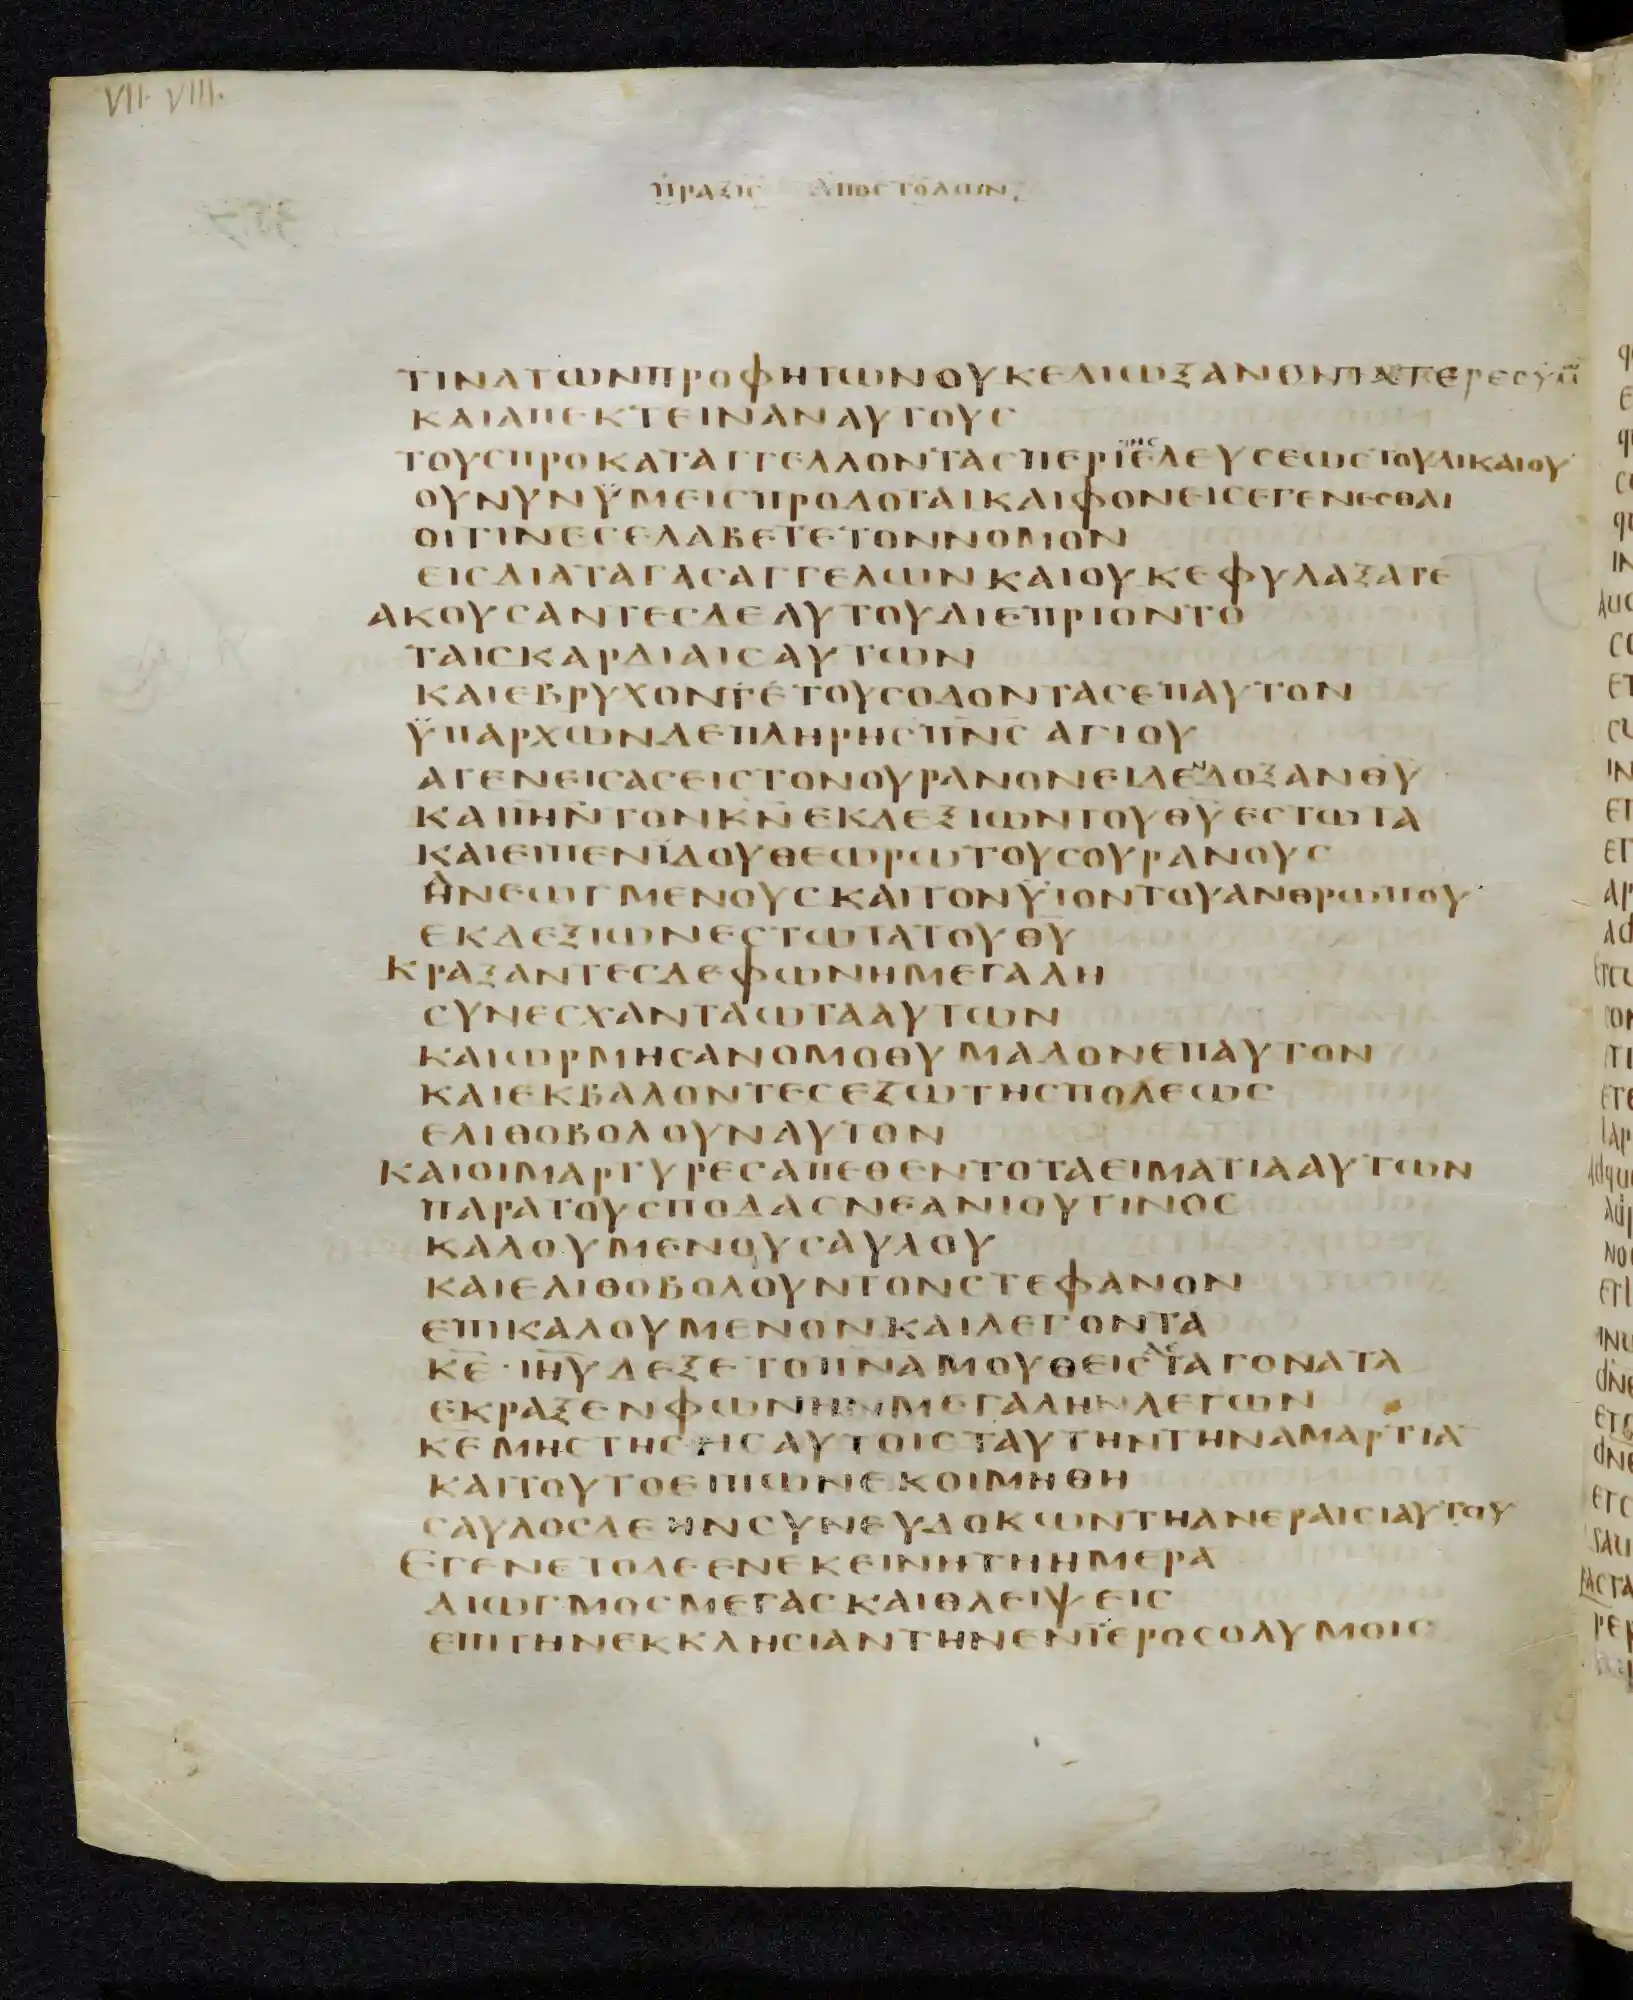 VII. VIII.
ΠΡΑΞΙΣ ΑΠΟΣΤΟΛΩΝ
ΤΙΝΑΤΩΝΠΡΟΦΗΤΩΝΟΥΚΕΔΙΩΞΑΝΟΙΠΑΤΕΡΕΣΥΜ
ΚΑΙΑΠΕΚΤΕΙΝΑΝΑΥΤΟΥΣ
ΤΟΥΣΠΡΟΚΑΤΑΓΓΕΛΛΟΝΤΑΣΠΕΡΙΤΗΣΕΛΕΥΣΕΩΣΤΟΥΔΙΚΑΙΟΥ
ΟΥΝΥΝΫΜΕΙΣΠΡΟΔΟΤΑΙΚΑΙΦΟΝΕΙΣΕΓΕΝΕΣΘΑΙ
ΟΙΤΙΝΕΣΕΛΑΒΕΤΕΤΟΝΝΟΜΟΝ
ΕΙΣΔΙΑΤΑΓΑΣΑΓΓΕΛΩΝΚΑΙΟΥΚΕΦΥΛΑΞΑΤΕ
ΑΚΟΥΣΑΝΤΕΣΔΕΑΥΤΟΥΔΙΕΠΡΙΟΝΤΟ
ΤΑΙΣΚΑΡΔΙΑΙΣΑΥΤΩΝ
ΚΑΙΕΒΡΥΧΟΝΤΕΤΟΥΣΟΔΟΝΤΑΣΕΠΑΥΤΟΝ
ΫΠΑΡΧΩΝΔΕΠΛΗΡΗΣΠ̅Ν̅Σ̅ ΑΓΙΟΥ
ΑΤΕΝΕΙΣΑΣΕΙΣΤΟΝΟΥΡΑΝΟΝΕΙΔΕΝΔΟΞΑΝΘ̅Υ̅
ΚΑΙΠΗΝΤΟΝΚ̅Ν̅ΕΚΔΕΞΙΩΝΤΟΥΘ̅Υ̅ΕΣΤΩΤΑ
ΚΑΙΕΙΠΕΝΪΔΟΥΘΕΩΡΩΤΟΥΣΟΥΡΑΝΟΥΣ
ΗΝΕΩΓΜΕΝΟΥΣΚΑΙΤΟΝΥΪΟΝΤΟΥΑΝΘΡΩΠΟΥ
ΕΚΔΕΞΙΩΝΕΣΤΩΤΑΤΟΥΘ̅Υ̅
ΚΡΑΞΑΝΤΕΣΔΕΦΩΝΗΜΕΓΑΛΗ
ΣΥΝΕΣΧΑΝΤΑΩΤΑΑΥΤΩΝ
ΚΑΙΩΡΜΗΣΑΝΟΜΟΘΥΜΑΔΟΝΕΠΑΥΤΟΝ
ΚΑΙΕΚΒΑΛΟΝΤΕΣΕΞΩΤΗΣΠΟΛΕΩΣ
ΕΛΙΘΟΒΟΛΟΥΝΑΥΤΟΝ
ΚΑΙΟΙΜΑΡΤΥΡΕΣΑΠΕΘΕΝΤΟΤΑΕΙΜΑΤΙΑΑΥΤΩΝ
ΠΑΡΑΤΟΥΣΠΟΔΑΣΝΕΑΝΙΟΥΤΙΝΟΣ
ΚΑΛΟΥΜΕΝΟΥΣΑΥΛΟΥ
ΚΑΙΕΛΙΘΟΒΟΛΟΥΝΤΟΝΣΤΕΦΑΝΟΝ
ΕΠΙΚΑΛΟΥΜΕΝΟΝΚΑΙΛΕΓΟΝΤΑ
Κ̅Ε̅·Ι̅Η̅Υ̅ΔΕΞΕΤΟΠ̅Ν̅Α̅ΜΟΥΘΕΙΣΔΕΤΑΓΟΝΑΤΑ
ΕΚΡΑΞΕΝΦΩΝΗΝΜΕΓΑΛΗΝΛΕΓΩΝ
Κ̅Ε̅ΜΗΣΤΗΣΗΣΑΥΤΟΙΣΤΑΥΤΗΝΤΗΝΑΜΑΡΤΙΑ̅
ΚΑΙΤΟΥΤΟΕΙΠΩΝΕΚΟΙΜΗΘΗ
ΣΑΥΛΟΣΔΕΗΝΣΥΝΕΥΔΟΚΩΝΤΗΑΝΕΡΑΙΣΙΑΥΤΟΥ
ΕΓΕΝΕΤΟΔΕΕΝΕΚΕΙΝΗΤΗΗΜΕΡΑ
ΔΙΩΓΜΟΣΜΕΓΑΣΚΑΙΘΛΕΙΨΕΙΣ
ΕΠΙΤΗΝΕΚΚΛΗΣΙΑΝΤΗΝΕΝΪΕΡΟΣΟΛΥΜΟΙΣ